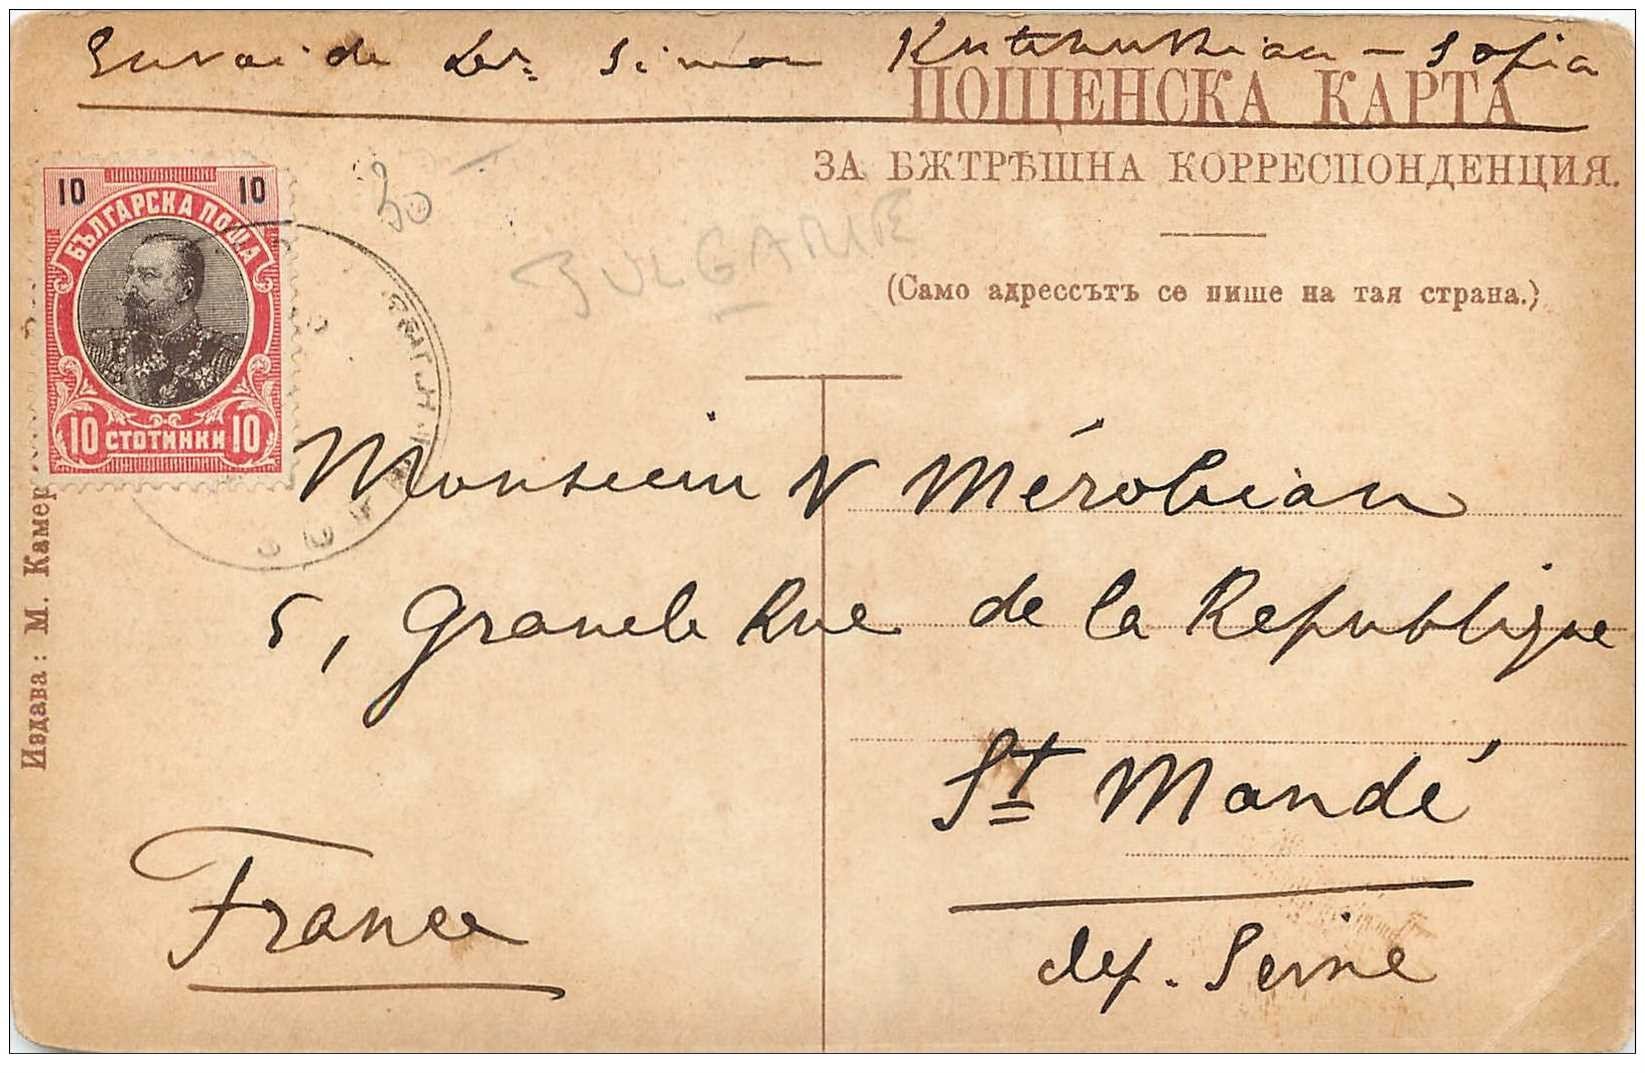 Envoi de Dr. Simon – Sofia
ПОЩЕНСКА КАРТА
ЗА ВѪТРѢШНА КОРРЕСПОНДЕНЦИЯ.
(Само адрессътъ се пише на тая страна.)
10 10
БЪЛГАРСКА ПОЩА
10 СТОТИНКИ 10
30 –
BULGARIE
Monsieur V Mérobian
5, Grande Rue de la Republique
St Mandé
dep. Seine
France
Издава: М. Камер